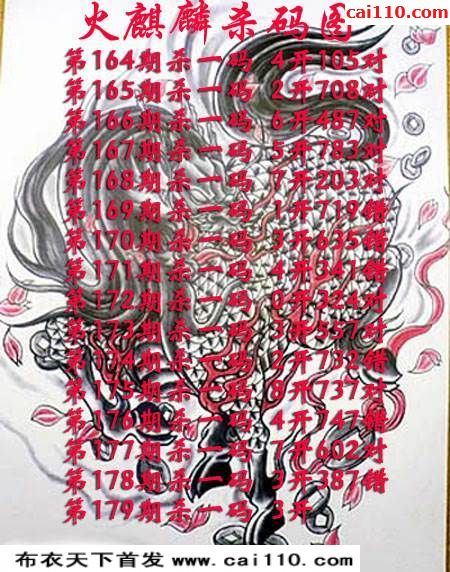 cai110.com
火麒麟杀码图
第164期杀一码 4开105对
第165期杀一码 2开708对
第166期杀一码 6开487对
第167期杀一码 5开783对
第168期杀一码 7开203对
第169期杀一码 1开719错
第170期杀一码 3开635错
第171期杀一码 4开341错
第172期杀一码 0开324对
第173期杀一码 3开557对
第174期杀一码 2开732错
第175期杀一码 8开737对
第176期杀一码 4开747错
第177期杀一码 7开602对
第178期杀一码 3开387错
第179期杀一码 3开
布衣天下首发 www.cai110.com